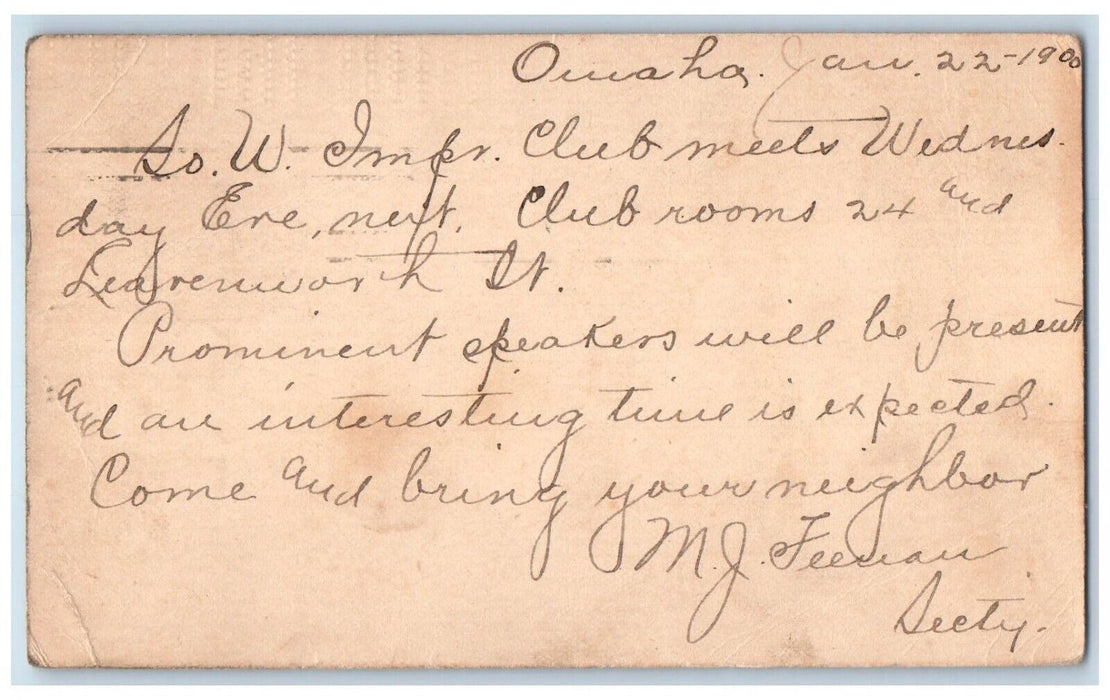 Omaha. Jan. 22-1900
So. W. Impr. Club meets Wednes.
day Eve, next. Club rooms 24 and
Leavenworth St.
Prominent speakers will be present
and an interesting time is expected.
Come and bring your neighbor
M. J. Feenan
Secty.